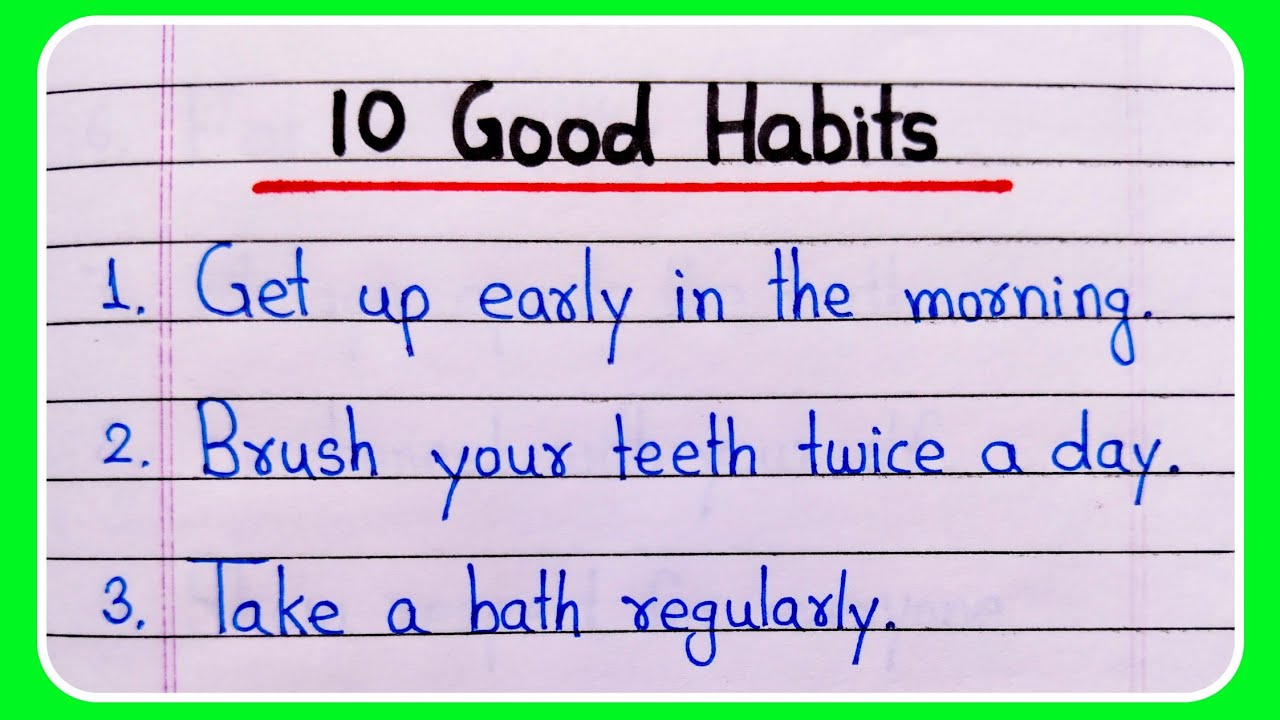 10 Good Habits
1. Get up early in the morning.
2. Brush your teeth twice a day.
3. Take a bath regularly.